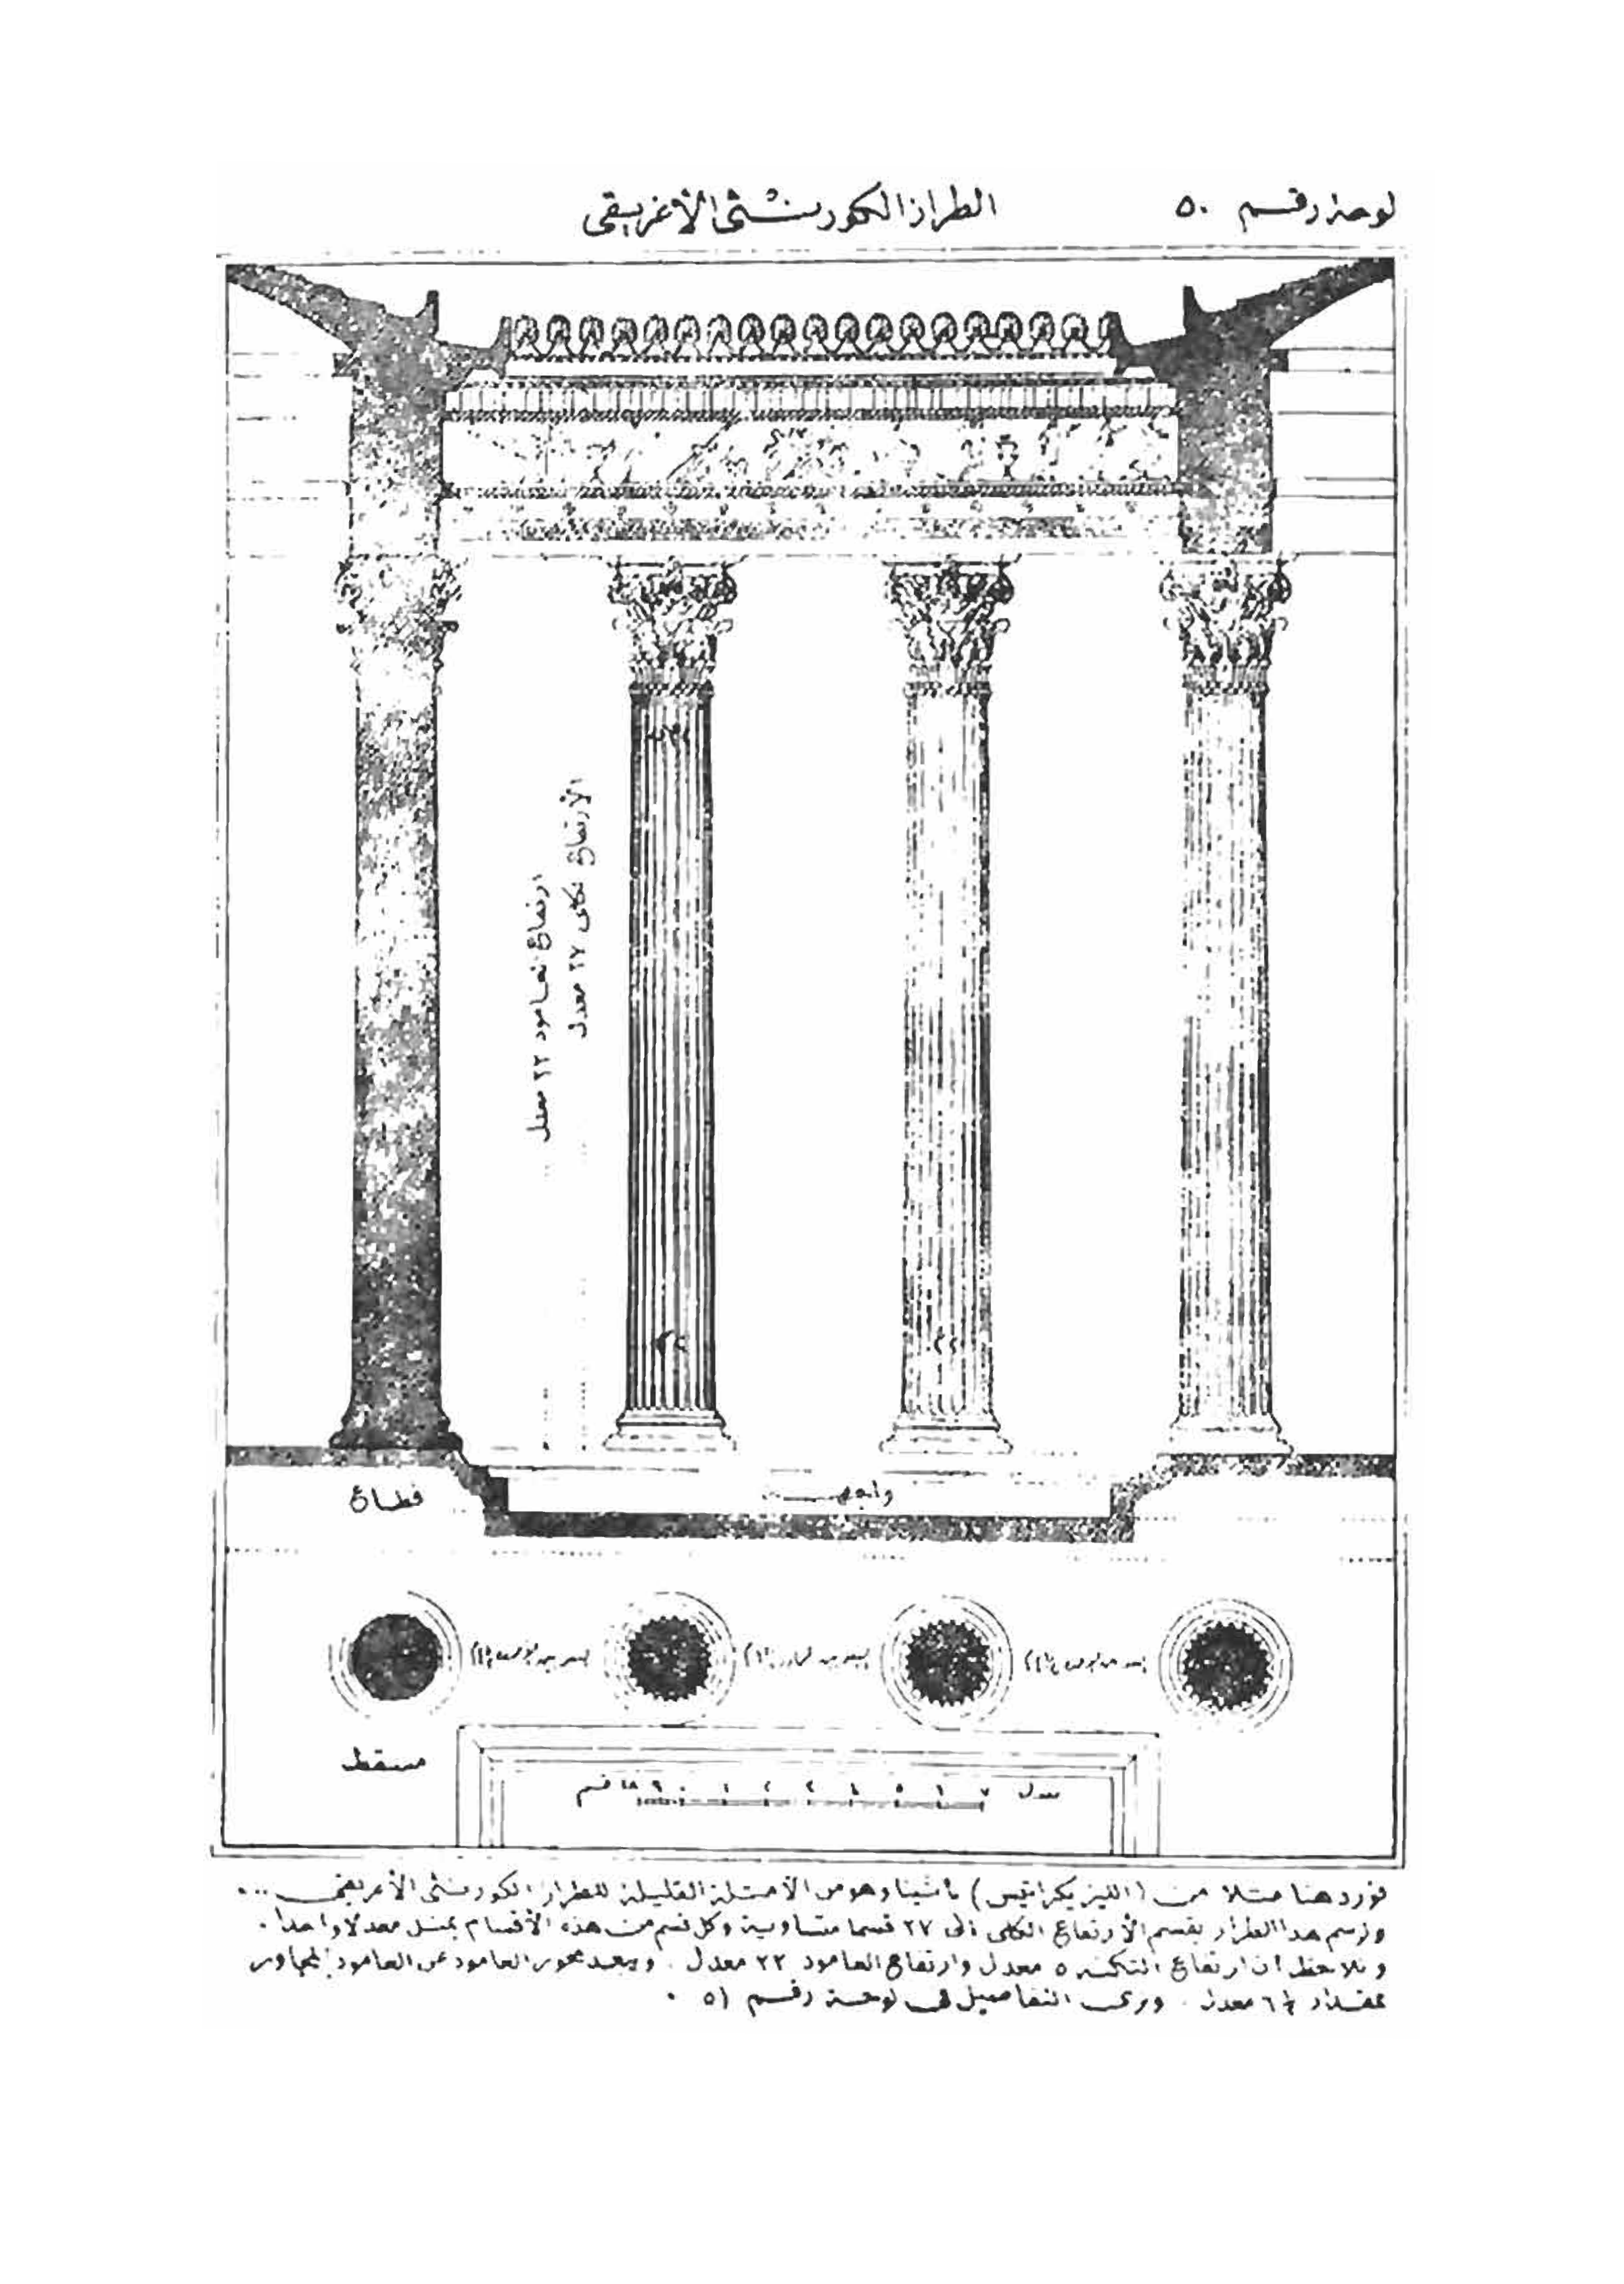 لوحة رقم ٥٠
الطراز الكورنثى الأغريقى
الأرتفاع الكلى ٢٧ معدل
ارتفاع العامود ٢٢ معدل
قطاع
واجهة
مسقط
٧ ٦ ٥ ٤ ٣ ٢ ١ ٠ ٩ ١٨ قسم
معدل
نورد هنا مثلا من (الليزيكراتيس) بأثينا وهو من الأمثلة القليلة للطراز الكورنثى الأغريقى ...
ولرسم هذا الطراز يقسم الأرتفاع الكلى الى ٢٧ قسما متساوية وكل قسم من هذه الأقسام يمثل معدلا واحدا .
ونلاحظ ان ارتفاع التكنه ٥ معدل وارتفاع العامود ٢٢ معدل . ويبعد محور العامود عن العامود المجاور
بمقدار ٦ معدل . وترى التفاصيل فى لوحة رقم ٥١ .